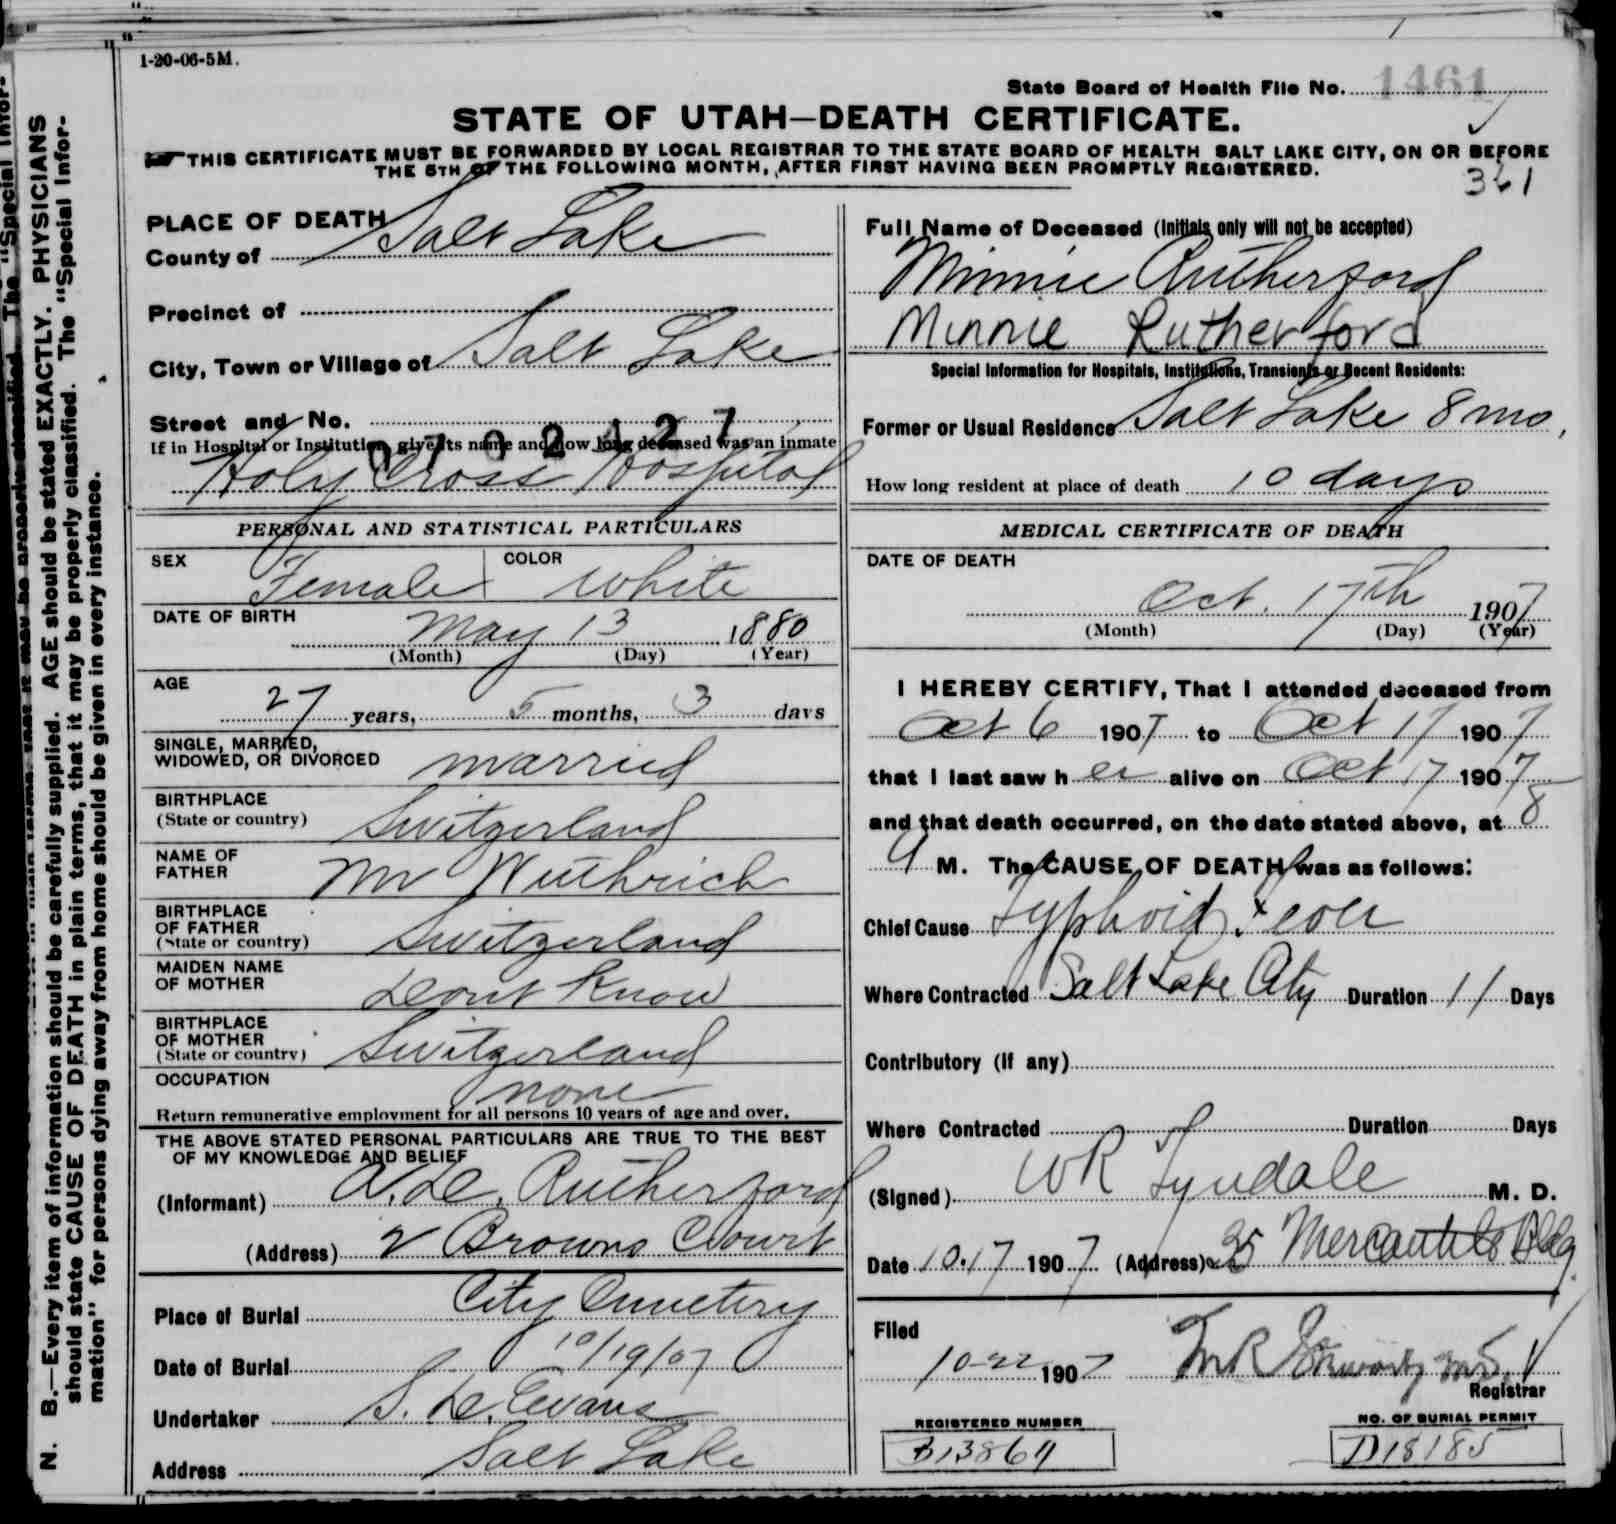 1-20-06-5M.
State Board of Health File No. 1461
STATE OF UTAH—DEATH CERTIFICATE.
THIS CERTIFICATE MUST BE FORWARDED BY LOCAL REGISTRAR TO THE STATE BOARD OF HEALTH SALT LAKE CITY, ON OR BEFORE
THE 5TH OF THE FOLLOWING MONTH, AFTER FIRST HAVING BEEN PROMPTLY REGISTERED.
361
PLACE OF DEATH
County of Salt Lake
Precinct of
City, Town or Village of Salt Lake
Street and No.
If in Hospital or Institution, give its name and how long deceased was an inmate
Holy Cross Hospital
Full Name of Deceased (Initials only will not be accepted)
Minnie Rutherford
Minnie Rutherford
Special Information for Hospitals, Institutions, Transients or Recent Residents:
Former or Usual Residence Salt Lake 8 mo.
How long resident at place of death 10 days
PERSONAL AND STATISTICAL PARTICULARS
SEX Female COLOR White
DATE OF BIRTH May 13 1880
(Month) (Day) (Year)
AGE
27 years, 5 months, 3 days
SINGLE, MARRIED,
WIDOWED, OR DIVORCED married
BIRTHPLACE
(State or country) Switzerland
NAME OF
FATHER Mr Wuthrich
BIRTHPLACE
OF FATHER
(State or country) Switzerland
MAIDEN NAME
OF MOTHER Dont Know
BIRTHPLACE
OF MOTHER
(State or country) Switzerland
OCCUPATION none
Return remunerative employment for all persons 10 years of age and over.
THE ABOVE STATED PERSONAL PARTICULARS ARE TRUE TO THE BEST
OF MY KNOWLEDGE AND BELIEF
(Informant) Rutherford
(Address) 2 Browns Court
Place of Burial City Cemetery
Date of Burial 10/19/07
Undertaker Evans
Address Salt Lake
MEDICAL CERTIFICATE OF DEATH
DATE OF DEATH
Oct. 17th 1907
(Month) (Day) (Year)
I HEREBY CERTIFY, That I attended deceased from
Oct 6 1907 to Oct 17 1907
that I last saw her alive on Oct 17 1907
and that death occurred, on the date stated above, at 8
M. The CAUSE OF DEATH was as follows:
Chief Cause Typhoid Fever
Where Contracted Salt Lake City Duration 11 Days
Contributory (If any)
Where Contracted Duration Days
(Signed) WR Tyndale M. D.
Date 10.17 1907 (Address) Mercantile Bldg.
Filed
10-22 1907
Registrar
REGISTERED NUMBER
B13864
NO. OF BURIAL PERMIT
D18185
N. B.—Every item of information should be carefully supplied. AGE should be stated EXACTLY. PHYSICIANS
should state CAUSE OF DEATH in plain terms, that it may be properly classified. The "Special Infor-
mation" for persons dying away from home should be given in every instance.